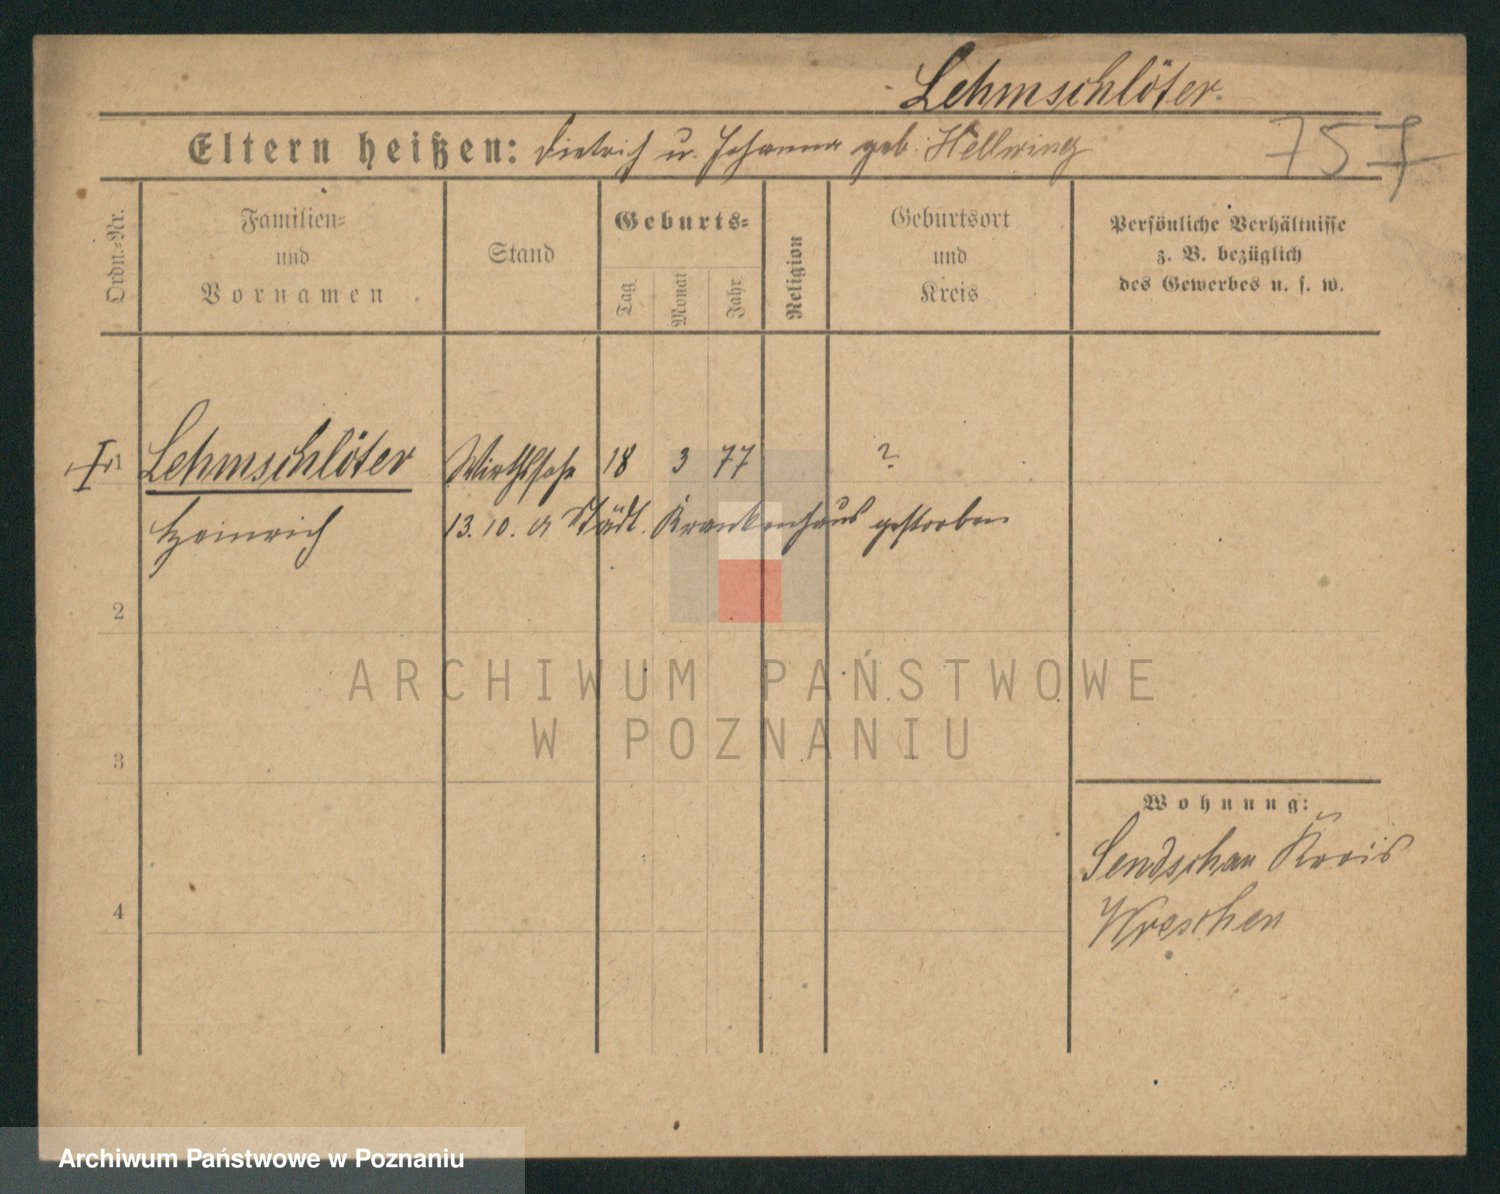 Lehmschlöter.
Eltern heißen: Dietrich u. Johanna geb. Hellwing
757
Ordn.-Nr.
Familien-
und
Vornamen
Stand
Geburts-
Tag
Monat
Jahr
Religion
Geburtsort
und
Kreis
Persönliche Verhältnisse
z. B. bezüglich
des Gewerbes u. s. w.
1 Lehmschlöter Wirthssohn 18 3 77 ?
Heinrich 13. 10. 01 Städt. Krankenhaus gestorben
2
ARCHIWUM PAŃSTWOWE
W POZNANIU
3
Wohnung:
Sendschau Kreis
Wreschen
4
Archiwum Państwowe w Poznaniu